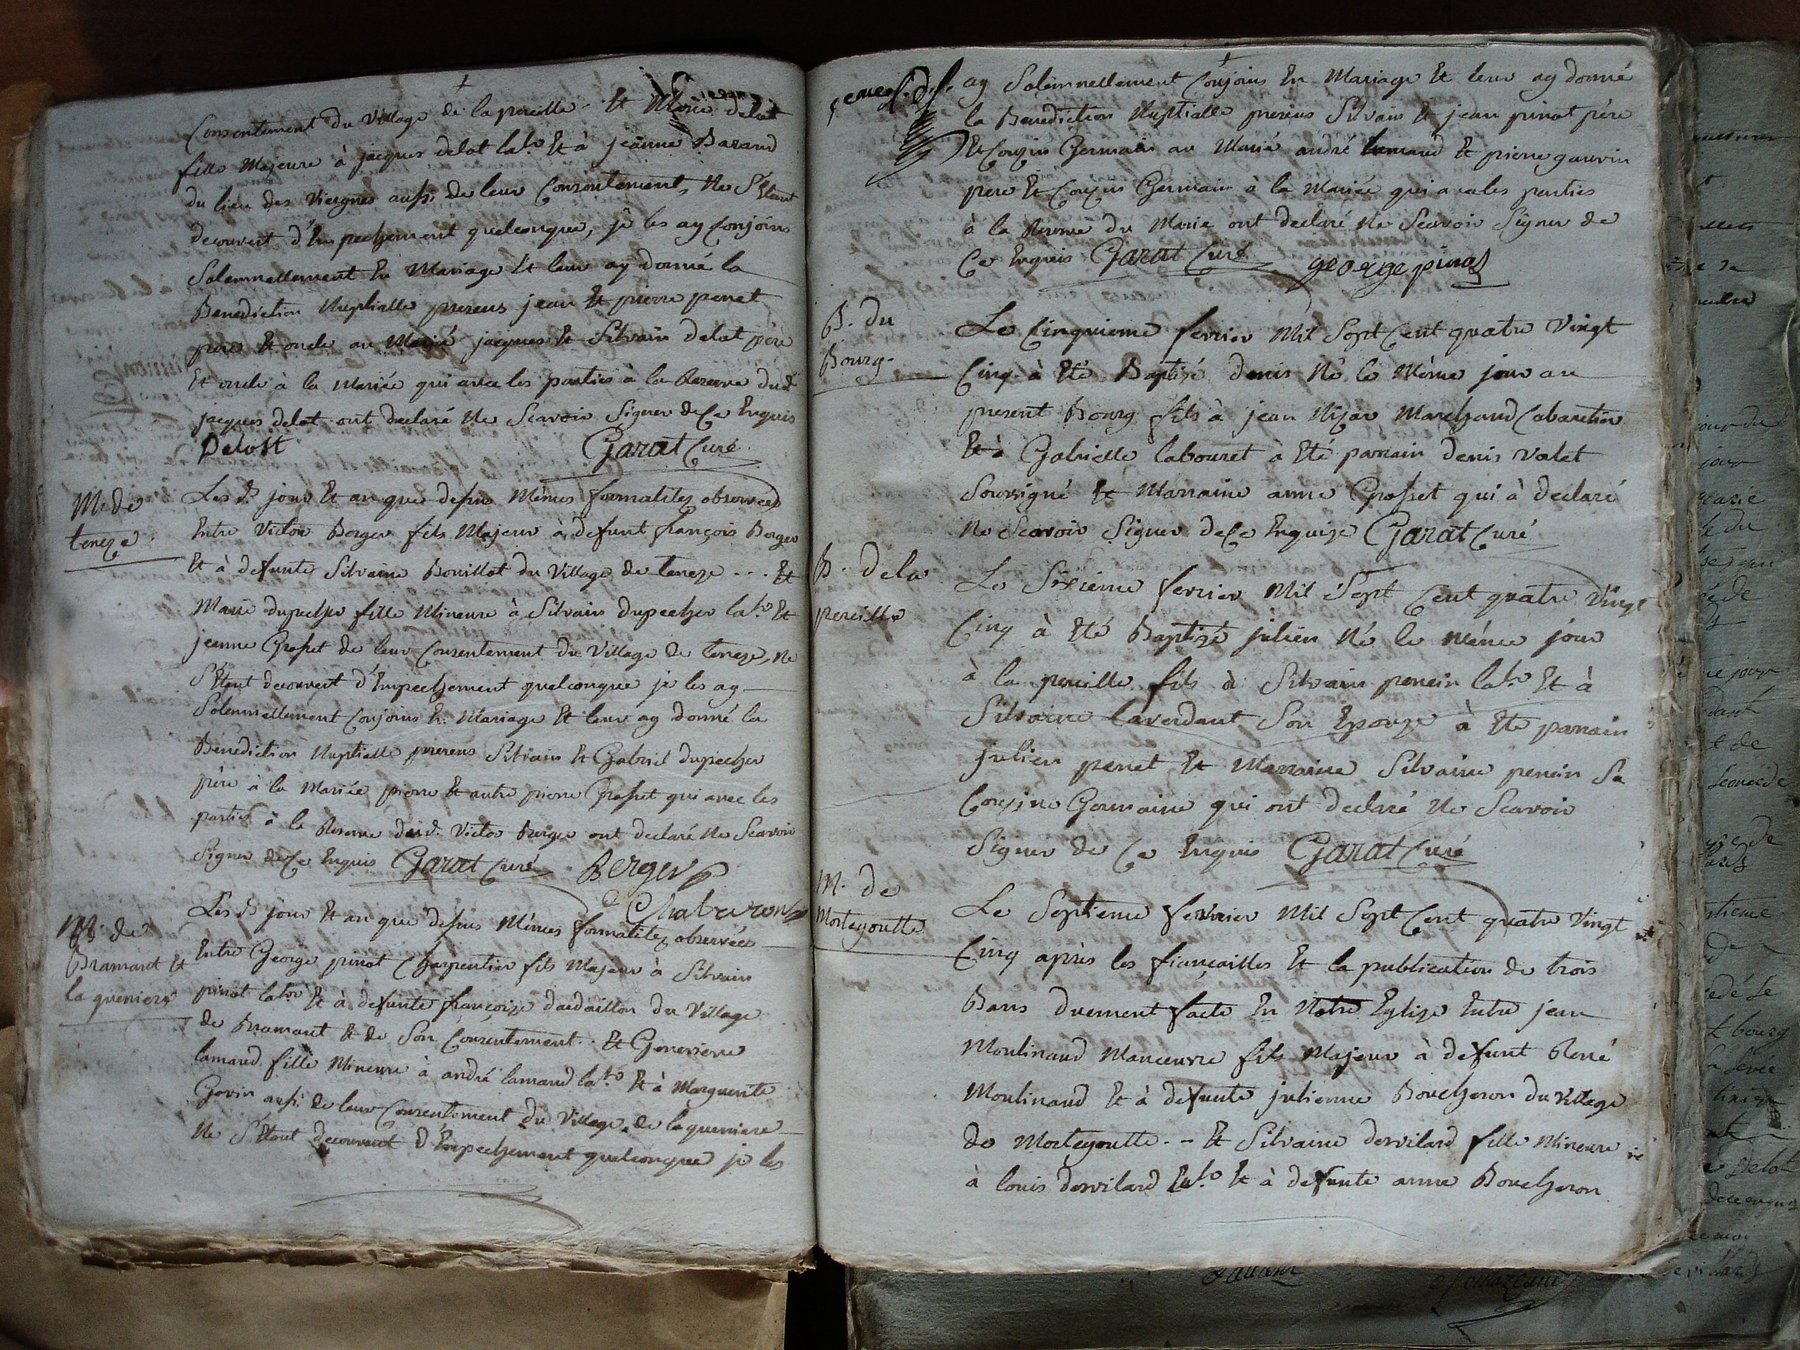 Consentement du village de la perelle. Et Marie delot
fille Majeure à jacques delot labr Et à jeanne Barand
du lieu des Viergnes aussi de leur Consentement, Ne S'Etant
decouvert d'Empechement quelconque, je les ay Conjoins
Solemnellement En Mariage Et leur ay donné la
Benediction Nuptialle presens jean Et pierre penet
père Et oncle au Marié jacques Et Silvain delot père
Et oncle à la Mariée qui avec les parties à la Reserve dud.
jacques delot ont declaré Ne Scavoir Signer de Ce Enquis
Delost Garat Curé
M. de
teneze
Les d. jour Et an que dessus Mêmes formalités observées
Entre Victor Berger fils Majeur à defunt françois Berger
Et à defunte Silvaine Bouillot du Village de teneze ... Et
Marie dupecher fille Mineure à Silvain dupecher labr. Et
jeanne Grosset de leur Consentement du Village de teneze, Ne
S'Etant decouvert d'Empechement quelconque je les ay
Solemnellement Conjoins En Mariage Et leur ay donné la
Benediction Nuptialle presens Silvain Et Gabriel dupecher
père à la Mariée pierre Et autre pierre Grosset qui avec les
parties à la Reserve dud. Victor Berger ont declaré Ne Scavoir
Signer de Ce Enquis Garat Curé Berger
Chabriron
M. de
Bramant Et
la queniere
Les d. jour Et an que dessus Mêmes formalités observées
Entre George pinot Charpentier fils Majeur à Silvain
pinot labr Et à defunte françoize daudaillon du Village
de Bramant Et de Son Consentement .. Et Genevieve
lamaud fille Mineure à andré lamaud labr. Et à Marguerite
Govin aussi de leur Consentement du Village de la queniere
Ne S'Etant decouvert d'Empechement quelconque je les
ay Solemnellement Conjoins En Mariage Et leur ay donné
la Benediction Nuptialle presens Silvain Et jean pinot père
Et Couzin Germain au Marié andré lamaud Et pierre gauvin
pere Et Couzin Germain à la Mariée qui avec les parties
à la Reserve du Marié ont declaré Ne Scavoir Signer de
Ce Enquis Garat Curé george pinot
B. du
Bourg.
Le Cinquieme fevrier Mil Sept Cent quatre Vingt
Cinq à Eté Baptizé denis Né le Même jour au
present Bourg fils à jean Nizar Marchand Cabaretier
Et à Gabrielle labouret à Eté parrain denis Valet
Soussigné Et Marraine anne Grosset qui à declaré
Ne Scavoir Signer de Ce Enquise Garat Curé
B. de la
pereille
Le Sixieme fevrier Mil Sept Cent quatre Vingt
Cinq à Eté Baptizé julien Né le Même jour
à la pereille fils à Silvain penein labr Et à
Silvaine laverdant Son Epouze à Eté parrain
julien penet Et Marraine Silvaine penein Sa
Couzine Germaine qui ont declaré Ne Scavoir
Signer de Ce Enquis Garat Curé
M. de
Mortegoutte
Le Septieme fevrier Mil Sept Cent quatre Vingt
Cinq après les fiançailles Et la publication de trois
Bans duement faite En Notre Eglize Entre jean
Moulinaud Manœuvre fils Majeur à defunt René
Moulinaud Et à defunte julienne Boucheron du Village
de Mortegoutte .. Et Silvaine dervilard fille Mineure
à louis dervilard labr. Et à defunte anne Boucheron